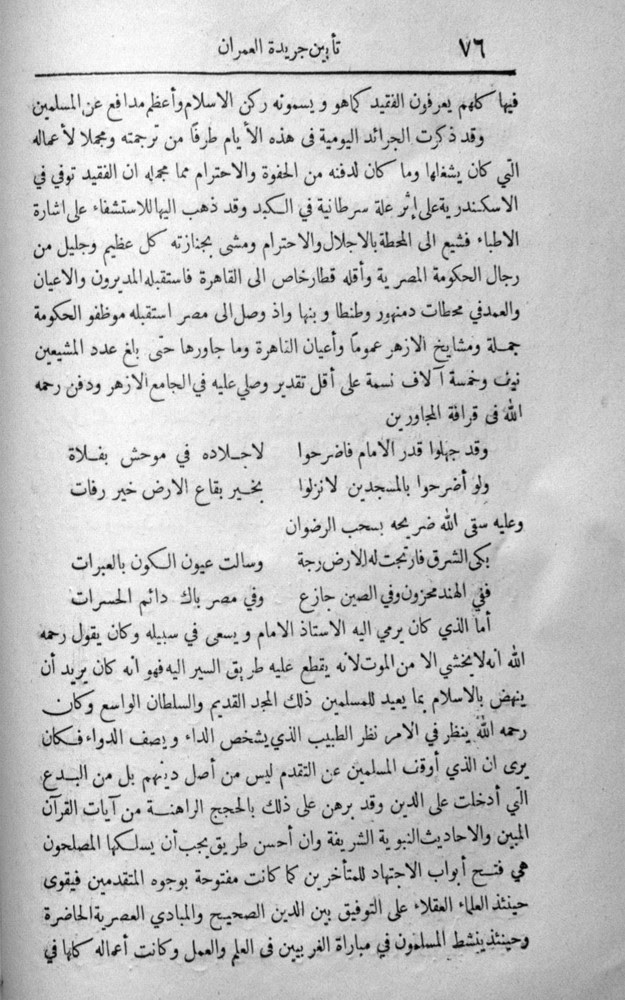 ٧٦
تأبين جريدة العمران
فيها كلهم يعرفون الفقيد كما هو ويسمونه ركن الاسلام وأعظم مدافع عن المسلمين
وقد ذكرت الجرائد اليومية في هذه الأيام طرفًا من ترجمته ومجملا لأعماله
التي كان يشغلها وما كان لدفنه من الحفوة والاحترام مما مجمله ان الفقيد توفي في
الاسكندرية على إثر علة سرطانية في الكبد وقد ذهب اليها للاستشفاء على اشارة
الاطباء فشيع الى المحطة بالاجلال والاحترام ومشى بجنازته كل عظيم وجليل من
رجال الحكومة المصرية وأقله قطار خاص الى القاهرة فاستقبله المديرون والاعيان
والعمد في محطات دمنهور وطنطا وبنها واذ وصل الى مصر استقبله موظفو الحكومة
جملة ومشايخ الازهر عمومًا وأعيان القاهرة وما جاورها حتى بلغ عدد المشيعين
نيف وخمسة آلاف نسمة على أقل تقدير وصلي عليه في الجامع الازهر ودفن رحمه
الله في قرافة المجاورين
وقد جهلوا قدر الامام فاضرحوا لاجلاده في موحش بفلاة
ولو أضرحوا بالمسجدين لانزلوا بخير بقاع الارض خير رفات
وعليه سقى الله ضريحه بسحب الرضوان
بكى الشرق فارتجت له الارض رجة وسالت عيون الكون بالعبرات
ففي الهند محزون وفي الصين جازع وفي مصر باك دائم الحسرات
أما الذي كان يرمي اليه الاستاذ الامام ويسعى في سبيله وكان يقول رحمه
الله انه لا يخشي الا من الموت لأنه يقطع عليه طريق السير اليه فهو انه كان يريد أن
ينهض بالاسلام بما يعيد للمسلمين ذلك المجد القديم والسلطان الواسع وكان
رحمه الله ينظر في الامر نظر الطبيب الذي يشخص الداء ويصف الدواء فكان
يرى ان الذي أوقف المسلمين عن التقدم ليس من أصل دينهم بل من البدع
التي أدخلت على الدين وقد برهن على ذلك بالحجج الراهنة من آيات القرآن
المبين والاحاديث النبوية الشريفة وان أحسن طريق يجب أن يسلكها المصلحون
هي فتح أبواب الاجتهاد للمتأخرين كما كانت مفتوحة بوجوه المتقدمين فيقوى
حينئذ العلماء العقلاء على التوفيق بين الدين الصحيح والمبادي العصرية الحاضرة
وحينئذ ينشط المسلمون في مباراة الغربيين في العلم والعمل وكانت أعماله كلها في